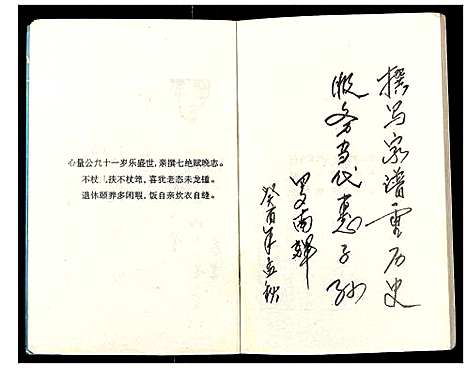 撰写家谱重历史
服务当代惠子孙
罗南辉
癸酉年孟秋
心量公九十一岁乐盛世，亲撰七绝赋晚志。
不杖扶不杖鸠，喜犹老态未龙锺。
退休颐养多闲暇，饭自亲炊衣自缝。